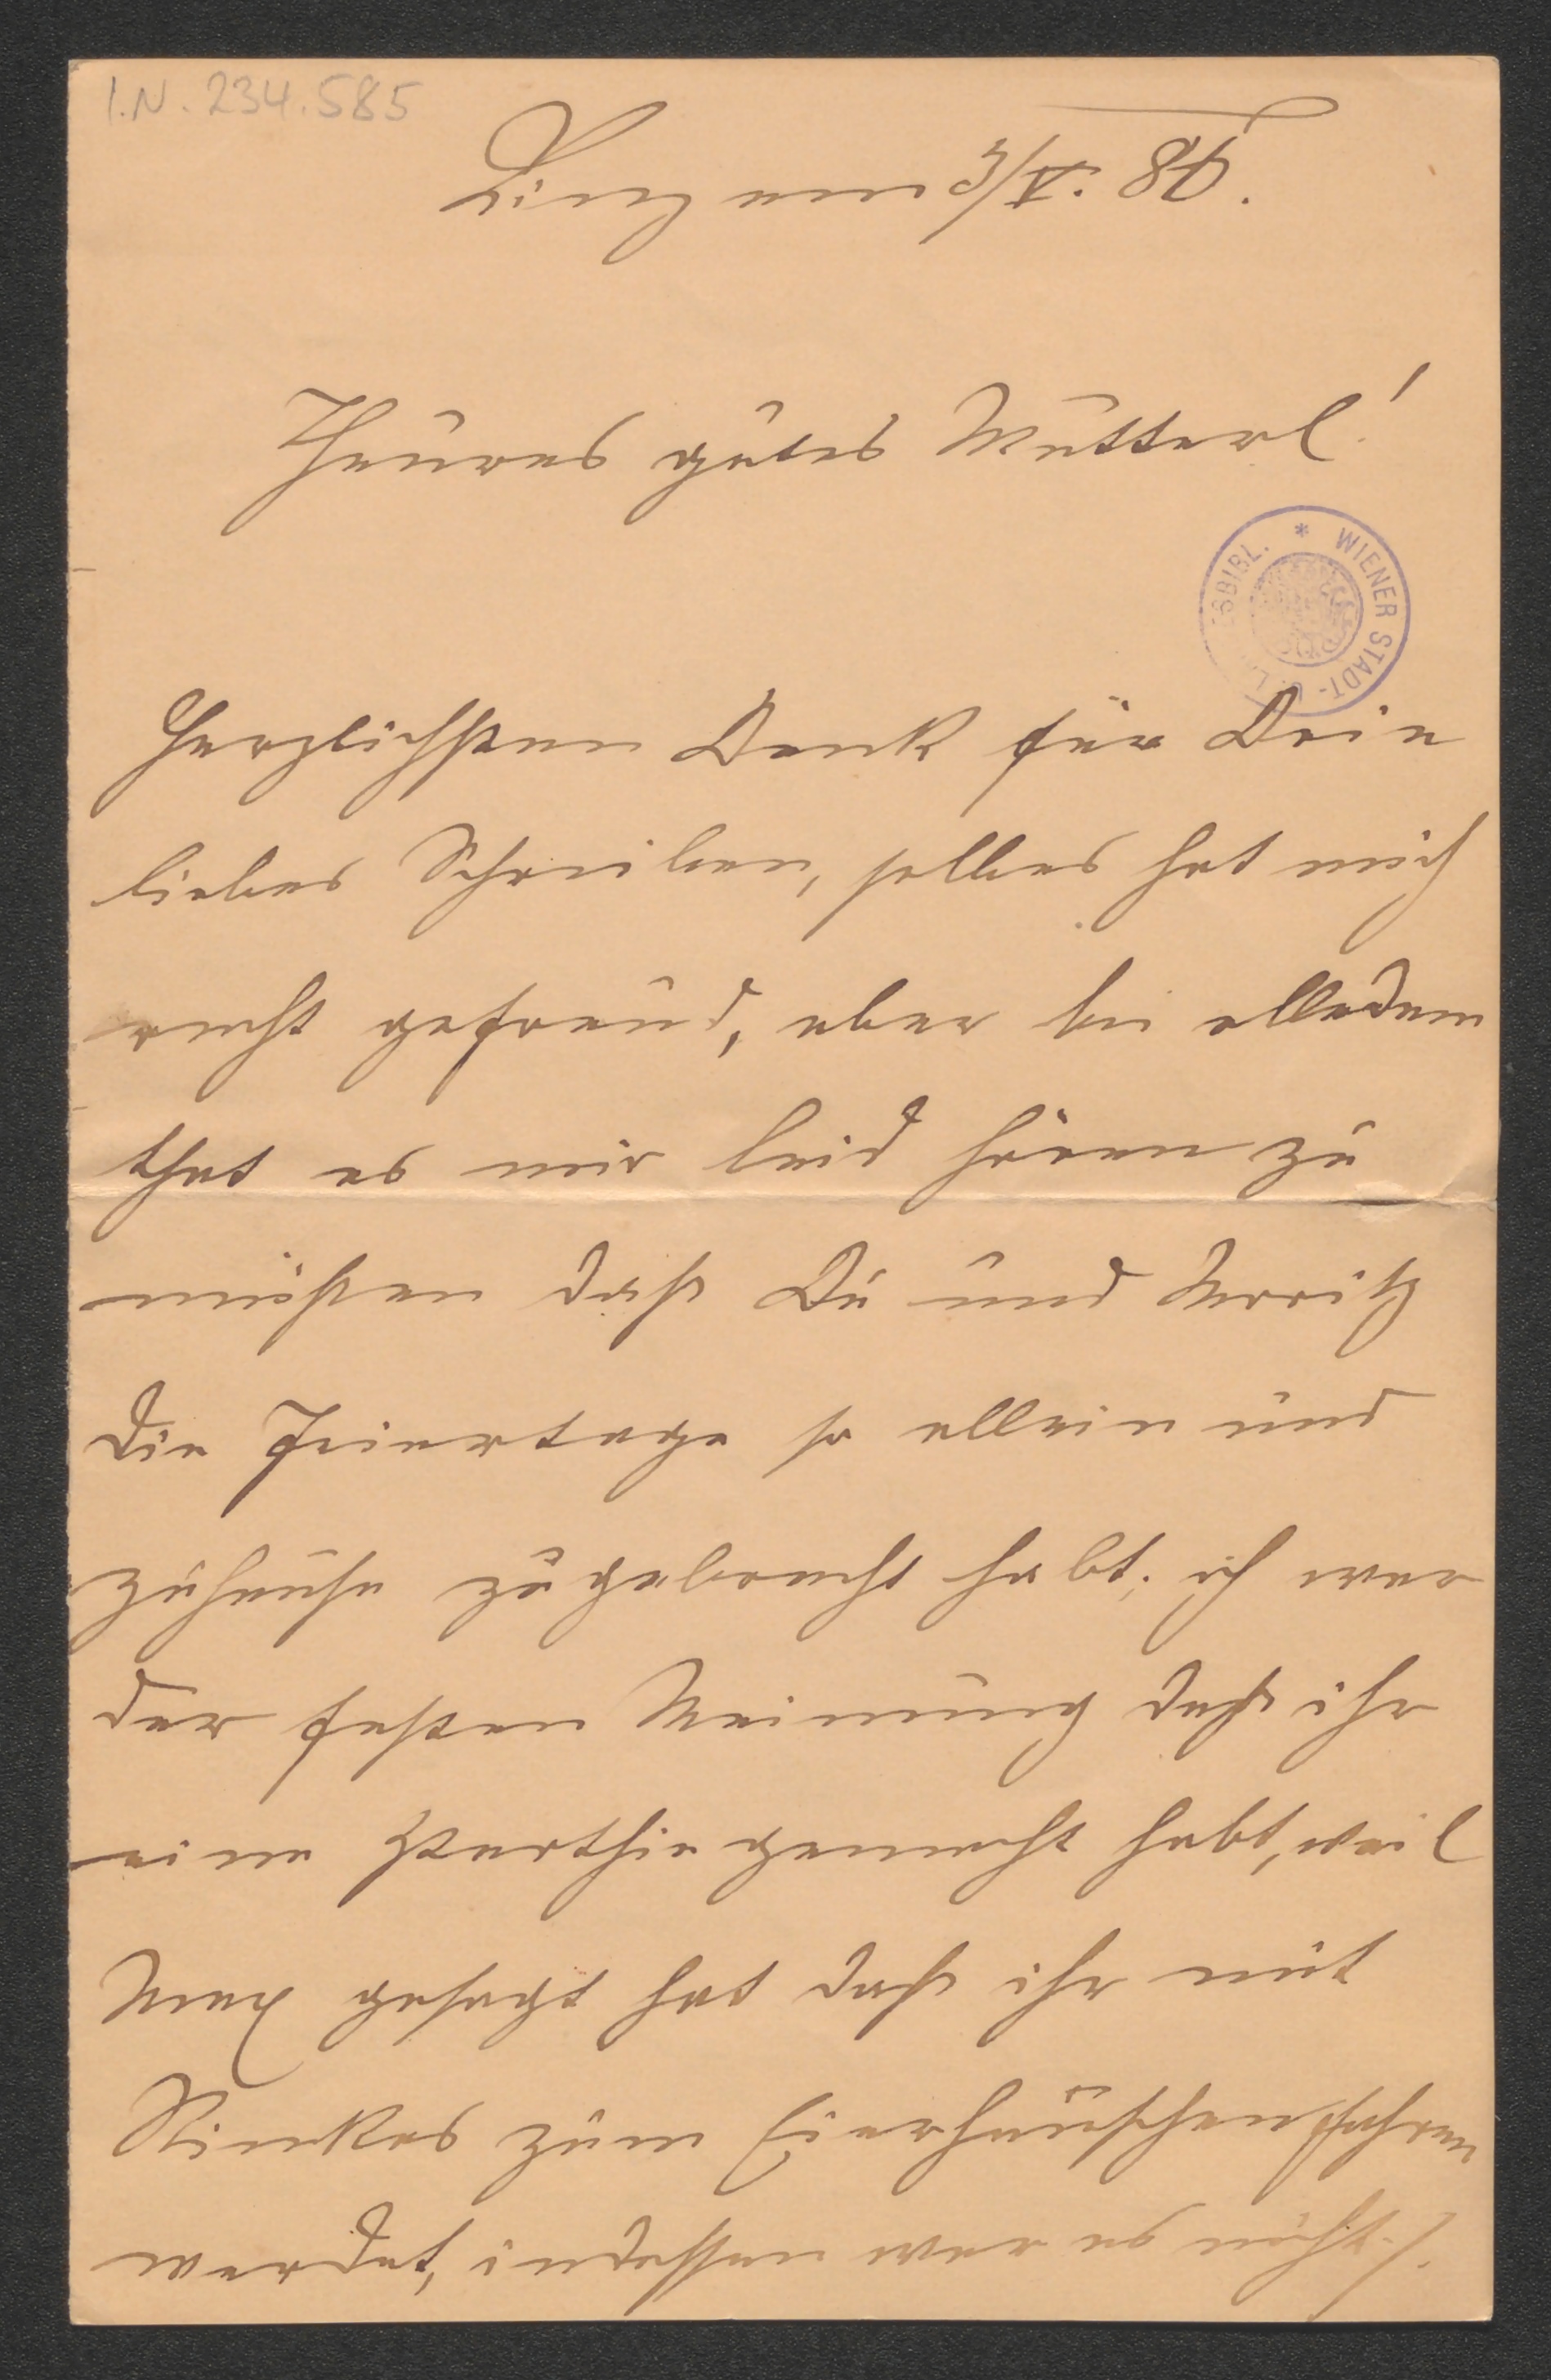 I.N. 234.585
Linz am 3/V. 86.
Theures gutes Mutterl!
* WIENER STADT- U. L ESBIBL.
Herzlichsten Dank für Dein
liebes Schreiben, selbes hat mich
recht gefreud, aber bei alledem
that es mir leid hören zu
müßen daß Du und Moritz
die Feiertage so allein und
zuhause zugebracht habt; ich war
der festen Meinung daß ihr
eine Parthie gemacht habt, weil
Max gesagt hat daß ihr mit
Rinkes zum Eierhäuschen fahren
werdet, indessen war es nicht./.